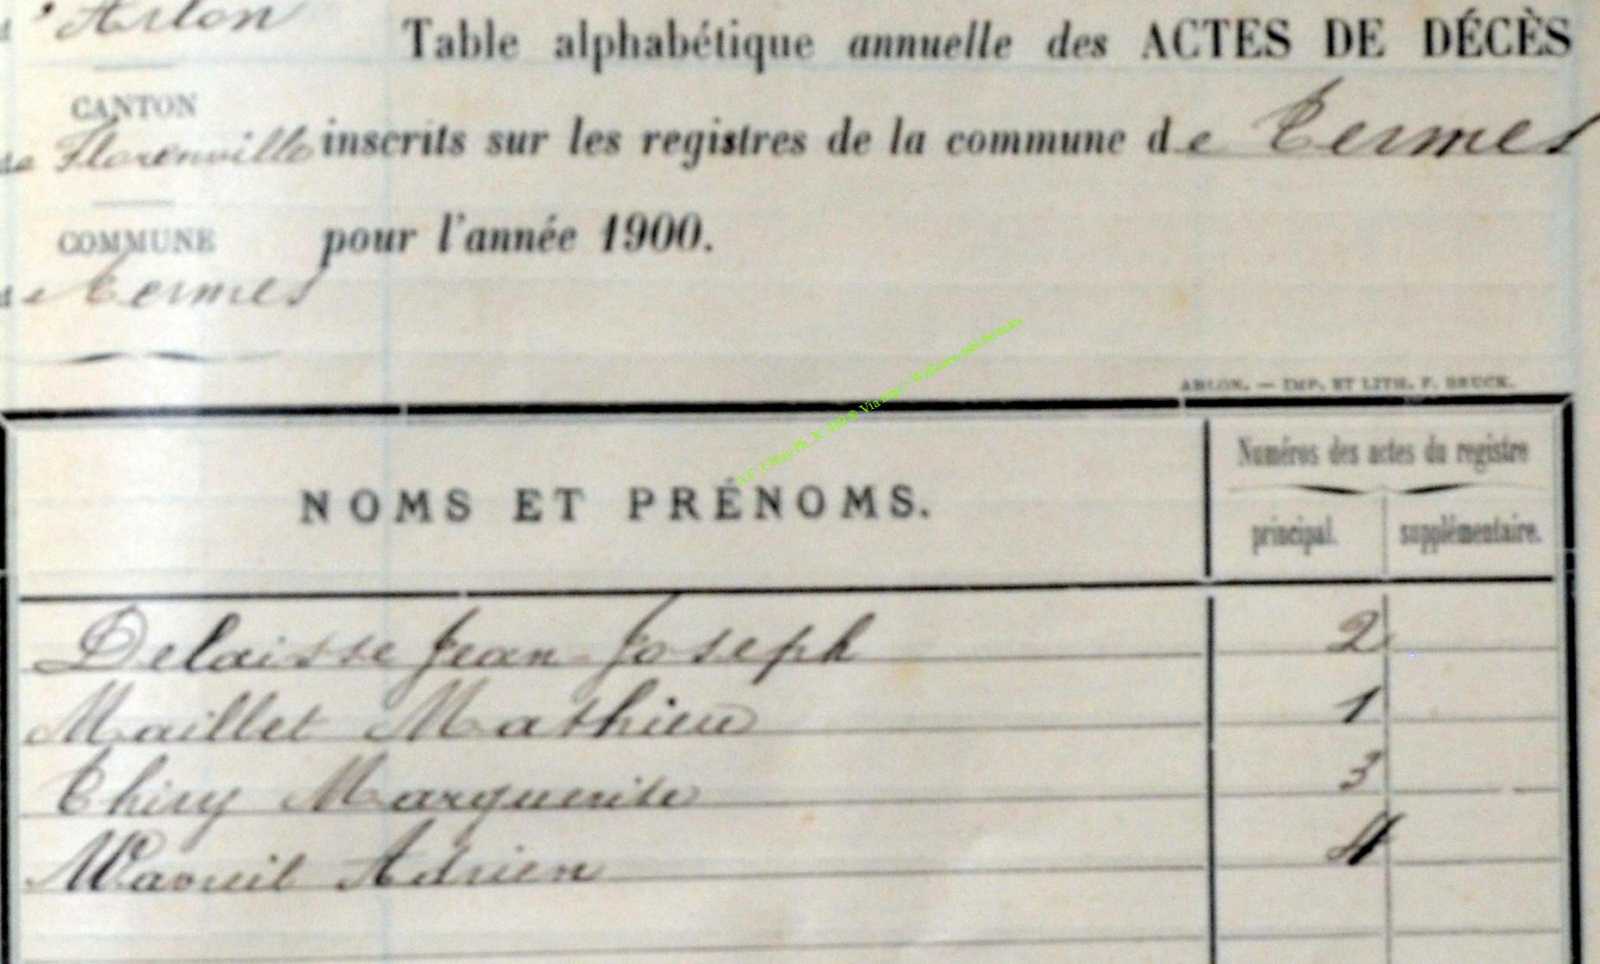 d'Arlon
Table alphabétique annuelle des ACTES DE DÉCÈS
CANTON
de Florenville
inscrits sur les registres de la commune de Termes
COMMUNE
pour l'année 1900.
de Termes
ARLON. — IMP. ET LITH. F. BRUCK.
Numéros des actes du registre
NOMS ET PRÉNOMS.
principal. supplémentaire.
Delaisse Jean-Joseph 2
Maillet Mathieu 1
Thiry Marguerite 3
Adrien 4